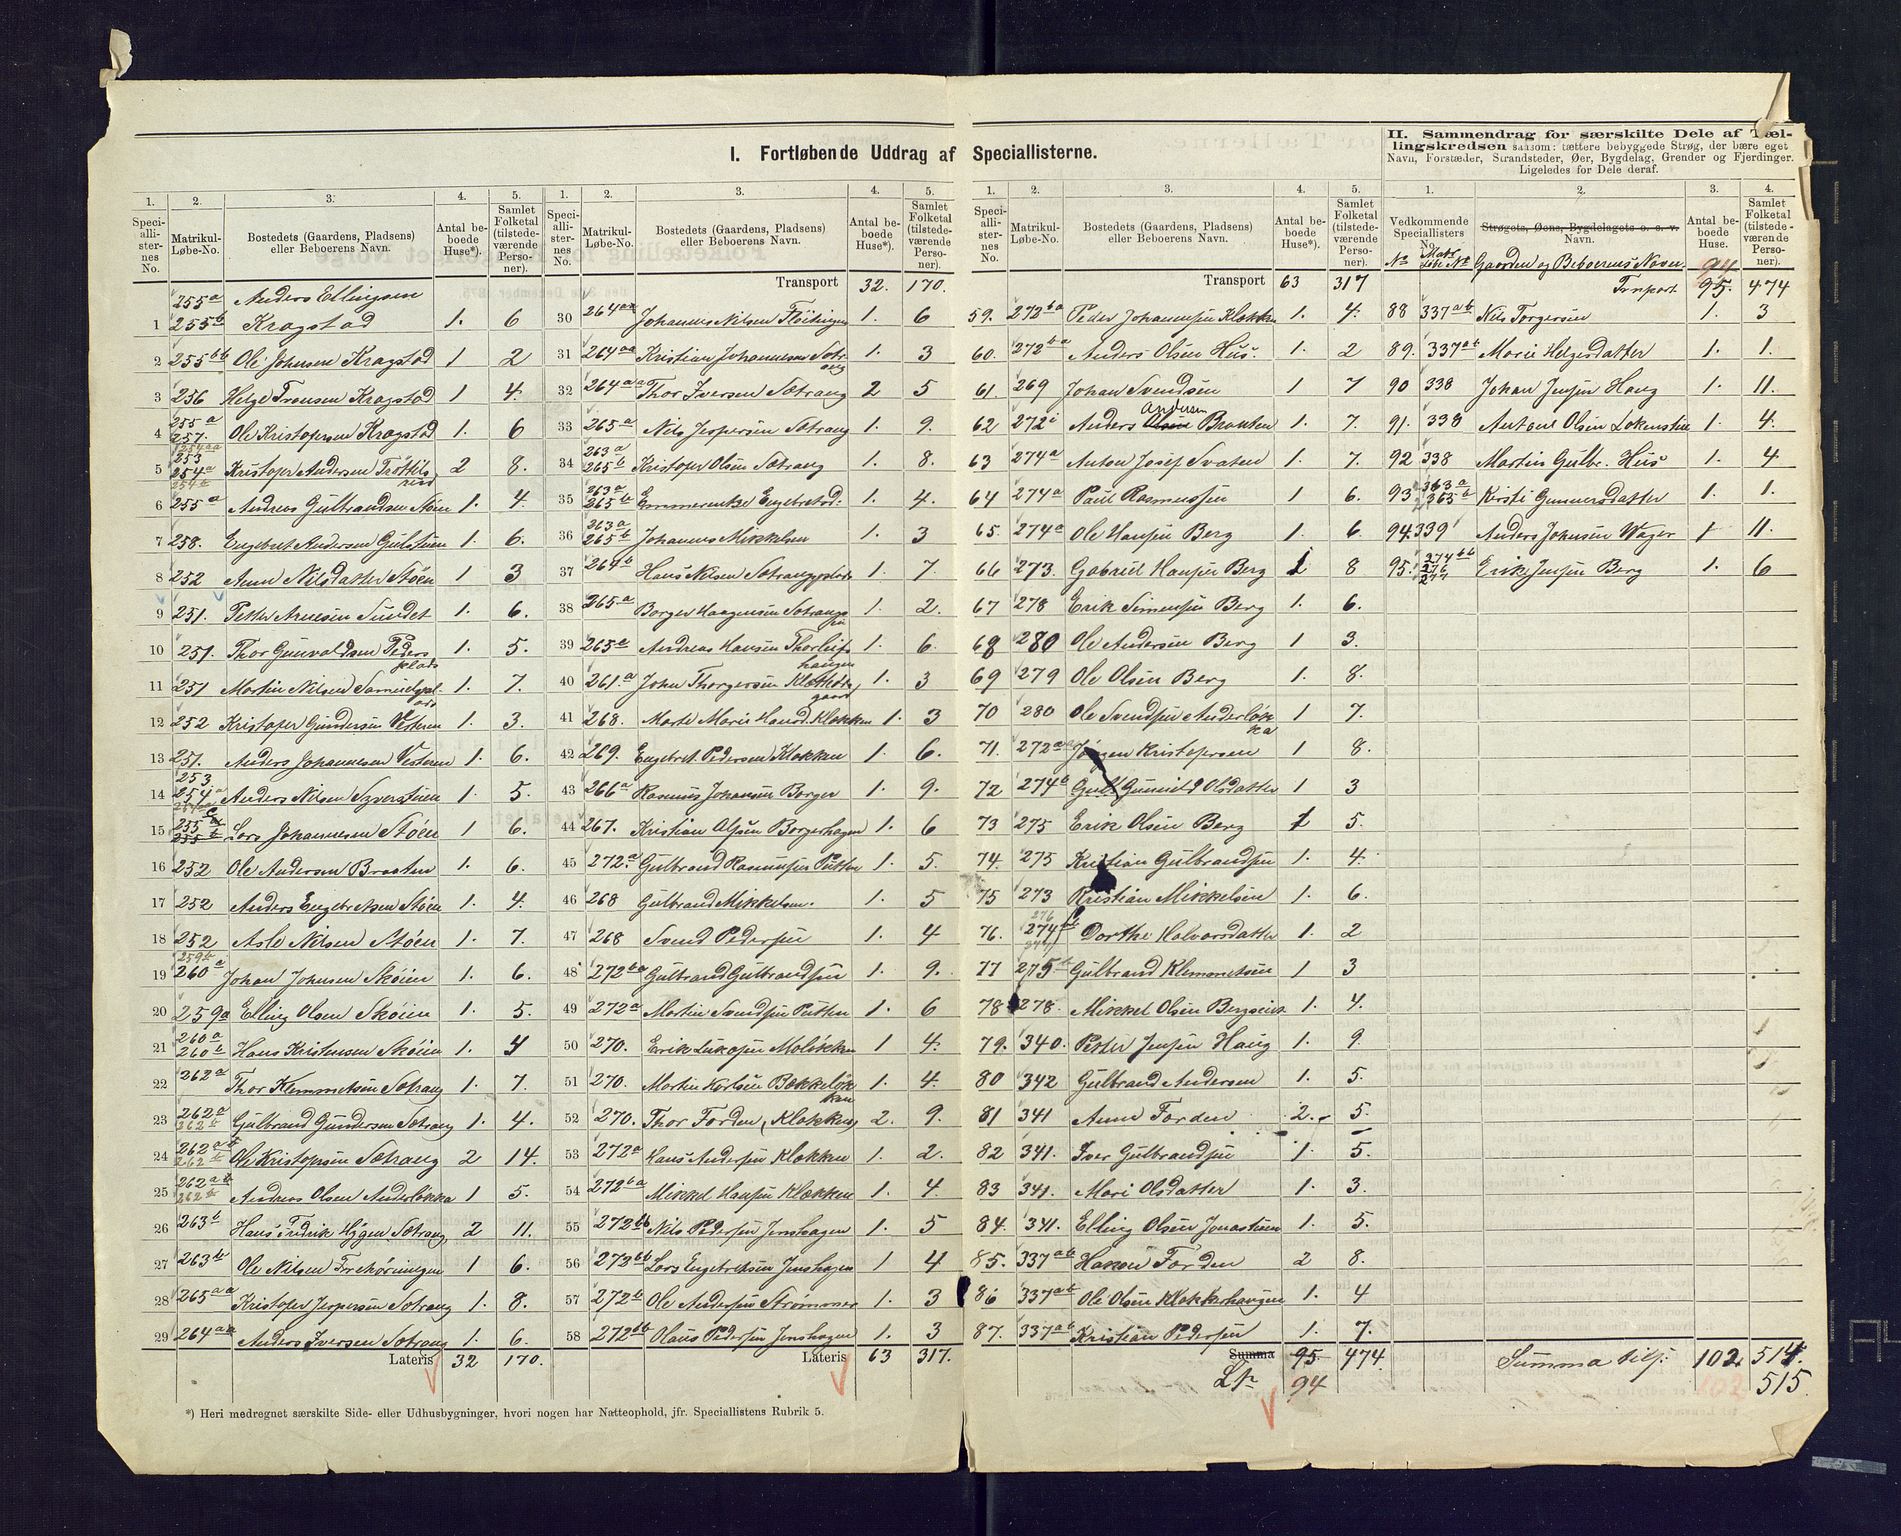 I. Fortløbende Uddrag af Speciallisterne.
II. Sammendrag for særskilte Dele af Tæl-
lingskredsen saasom: tættere bebyggede Strøg, der bære eget
Navn, Forstæder, Strandsteder, Øer, Bygdelag, Grender og Fjerdinger.
Ligeledes for Dele deraf.
1. 2. 3. 4. 5.
Speciallisternes No. Matrikul-Løbe-No. Bostedets (Gaardens, Pladsens) eller Beboerens Navn. Antal beboede Huse*). Samlet Folketal (tilstedeværende Personer).
255a Anders Ellingsen
1 255b Kragstad 1. 6
2 255bb Ole Johnsen Kragstad 1 2
3 256 Helge Fransen Kragstad 1 4.
4 255a 257. Ole Kristofersen Kragstad 1. 6
5 253 254a Kristofer Andersen 2 8.
6 255a Andreas Gulbrandsen Støen 1. 4.
7 258. Engebret Andersen Gulstuen 1. 6.
8 252 Anne Nilsdatter Støen 1 3
9 251. Petter Arnesen Sundet 1. 6.
10 251. Thor Gunvaldsen Pedersplads 1. 5.
11 251 Martin Nilsen 1. 7.
12 252 Kristofer Gundersen Vestern 1. 3.
13 251. Anders Johannesen Vestern 1. 6.
14 253 254a Anders Nilsen Syverstuen 1. 5.
15 255 Lars Johannesen Støen 1 6.
16 252 Ole Andersen Braaten 1. 6.
17 252 Anders Engebretsen Støen 1. 4.
18 252 Asle Nilsen Støen 1. 7.
19 259b 260a Johan Johnsen Skøien 1. 6.
20 259a Elling Olsen Skøien 1. 5.
21 260a 260b Hans Kristensen Skøien 1. 4
22 262a Thor Klemmetsen Sætrang 1. 7.
23 262a 262b Gulbrand Gundersen Sætrang 1. 4.
24 262ab 262b Ole Kristofersen Sætrang 2 14.
25 262ab 262b Andreas Olsen Anderløkka 1 5.
26 263b Hans Fredrik Hygen Sætrang 2 11.
27 263b Ole Nilsen 1 6.
28 265aa Kristofer Jespersen Sætrang 1. 8.
29 264aa Anders Iversen Sætrang 1. 6.
Lateris 32 170.
1. 2. 3. 4. 5.
Speciallisternes No. Matrikul-Løbe-No. Bostedets (Gaardens, Pladsens) eller Beboerens Navn. Antal beboede Huse*). Samlet Folketal (tilstedeværende Personer).
Transport 32. 170.
30 264aa Johannes Nilsen 1. 6
31 264aa Kristian Johannesen Sætrang 1. 3
32 264aa Thor Iversen Sætrang 2 5
33 265a Nils Jespersen Sætrang 1. 9.
34 263a 265b Kristofer Olsen Sætrang 1. 8.
35 263a 265b Emmerentze Engebretsd. 1. 4.
36 263a 265b Johannes Mikkelsen 1. 3
37 264b Hans Nilsen 1. 7
38 265a Borger Haagensen 1. 2.
39 265a Andreas Hansen Thorleifshaugen 1. 6.
40 261.a John Thorgersen 1. 3
41 268. Marte Marie Hansd. Klækken 1. 3
42 269. Engebret Pedersen Klækken 1 6.
43 266a Rasmus Johansen Borger 1. 9.
44 267. Kristian Olsen Borgerhagen 1. 6
45 272a Gulbrand Rasmussen Putten 1. 5.
46 268 Gulbrand Mikkelsen. 1. 5
47 268 Svend Pedersen 1. 4
48 272ba Gulbrand Gulbrandsen 1. 9.
49 272a Martin Svendsen Putten 1. 6
50 270. Erik Lukasen Moløkken 1 4.
51 270. Martin Karlsen Bækkeløkken 1. 4.
52 270. Thor Forden, Klækken 2. 9.
53 272a Hans Andersen Klækken 1. 2.
54 272ba Mikkel Hansen Klækken 1. 4.
55 272bb Nils Pedersen Jenshagen 1. 5
56 272bb Lars Engebretsen Jenshagen 1 4
57 272b Ole Andersen Strømmer 1. 3
58 272bb Olaus Pedersen Jenshagen 1. 3
Lateris 63 317.
*) Heri medregnet særskilte Side- eller Udhusbygninger, hvori nogen har Natteophold, jfr. Speciallistens Rubrik 5.
1. 2. 3. 4. 5.
Speciallisternes No. Matrikul-Løbe-No. Bostedets (Gaardens, Pladsens) eller Beboerens Navn. Antal beboede Huse*). Samlet Folketal (tilstedeværende Personer).
Transport 63 317
59. 272ba Peder Johannesen Klækken 1. 4.
60. 272ba Anders Olsen Hus. 1. 2
61. 269 Johan Svendsen 1 7
62 272i Anders Olsen Andersen Braaten 1. 7.
63 274a Anton Josef Svaten 1. 7.
64 274a Paul Rasmussen 1 6.
65. 274a Ole Hansen Berg 1. 6.
66 273. Gabriel Hansen Berg 1 8
67 278 Erik Simensen Berg 1. 6.
68 280 Ole Andersen Berg 1 3.
69 279 Ole Olsen Berg 1. 8.
70 280 Ole Svendsen Anderløkka 1 7.
71. 272 Jörgen Kristofersen 1 8.
72 274b Gunild Olsdatter 1 3
73 275 Erik Olsen Berg 1 5.
74. 275 Kristian Gulbrandsen 1. 4.
75 273 Kristian Mikkelsen 1. 6.
76. 276 274b 277 Dorthe Halvorsdatter 1. 2
77 275b Gulbrand Klemmetsen 1 3
78 278. Mikkel Olsen 1. 4.
79. 340. Petter Jensen Haug 1. 9.
80 342 Gulbrand Andersen 1. 5.
81 341 Anne Forden 2. 5.
82 341. Iver Gulbrandsen 1. 5.
83 341. Mari Olsdatter 1. 3.
84. 341. Elling Olsen Jonastuen 1. 5.
85. 337ab Hanen Forden 2 8.
86 337ab Ole Olsen Klækkenhaugen 1. 4
87. 337ab Kristian Pedersen 1. 7.
Summa 95 474.
94
1. 2. 3. 4.
Vedkommende Speciallisters No. Strøgets, Øens, Bygdelagets o. s. v. Navn. Antal beboede Huse. Samlet Folketal (tilstedeværende Personer).
No Gaarden og Beboerens Navn.
94
Trnport 95. 474
88 337ab Nils Torgersen 1. 3
89. 337ab Marie Helgesdatter 1. 1.
90 338 Johan Jensen Haug 1. 11.
91. 338 Antone Olsen 1. 4.
92 338 Martin Gulbr. Hus 1. 4
93 263a 265b Kirsti Gunnersdatter 1. 1.
94. 339 Anders Johnsen Wager 1 11.
95. 274bb 276 277 Erik Jensen Berg 1. 6
Summa 102. 514.
102 515.